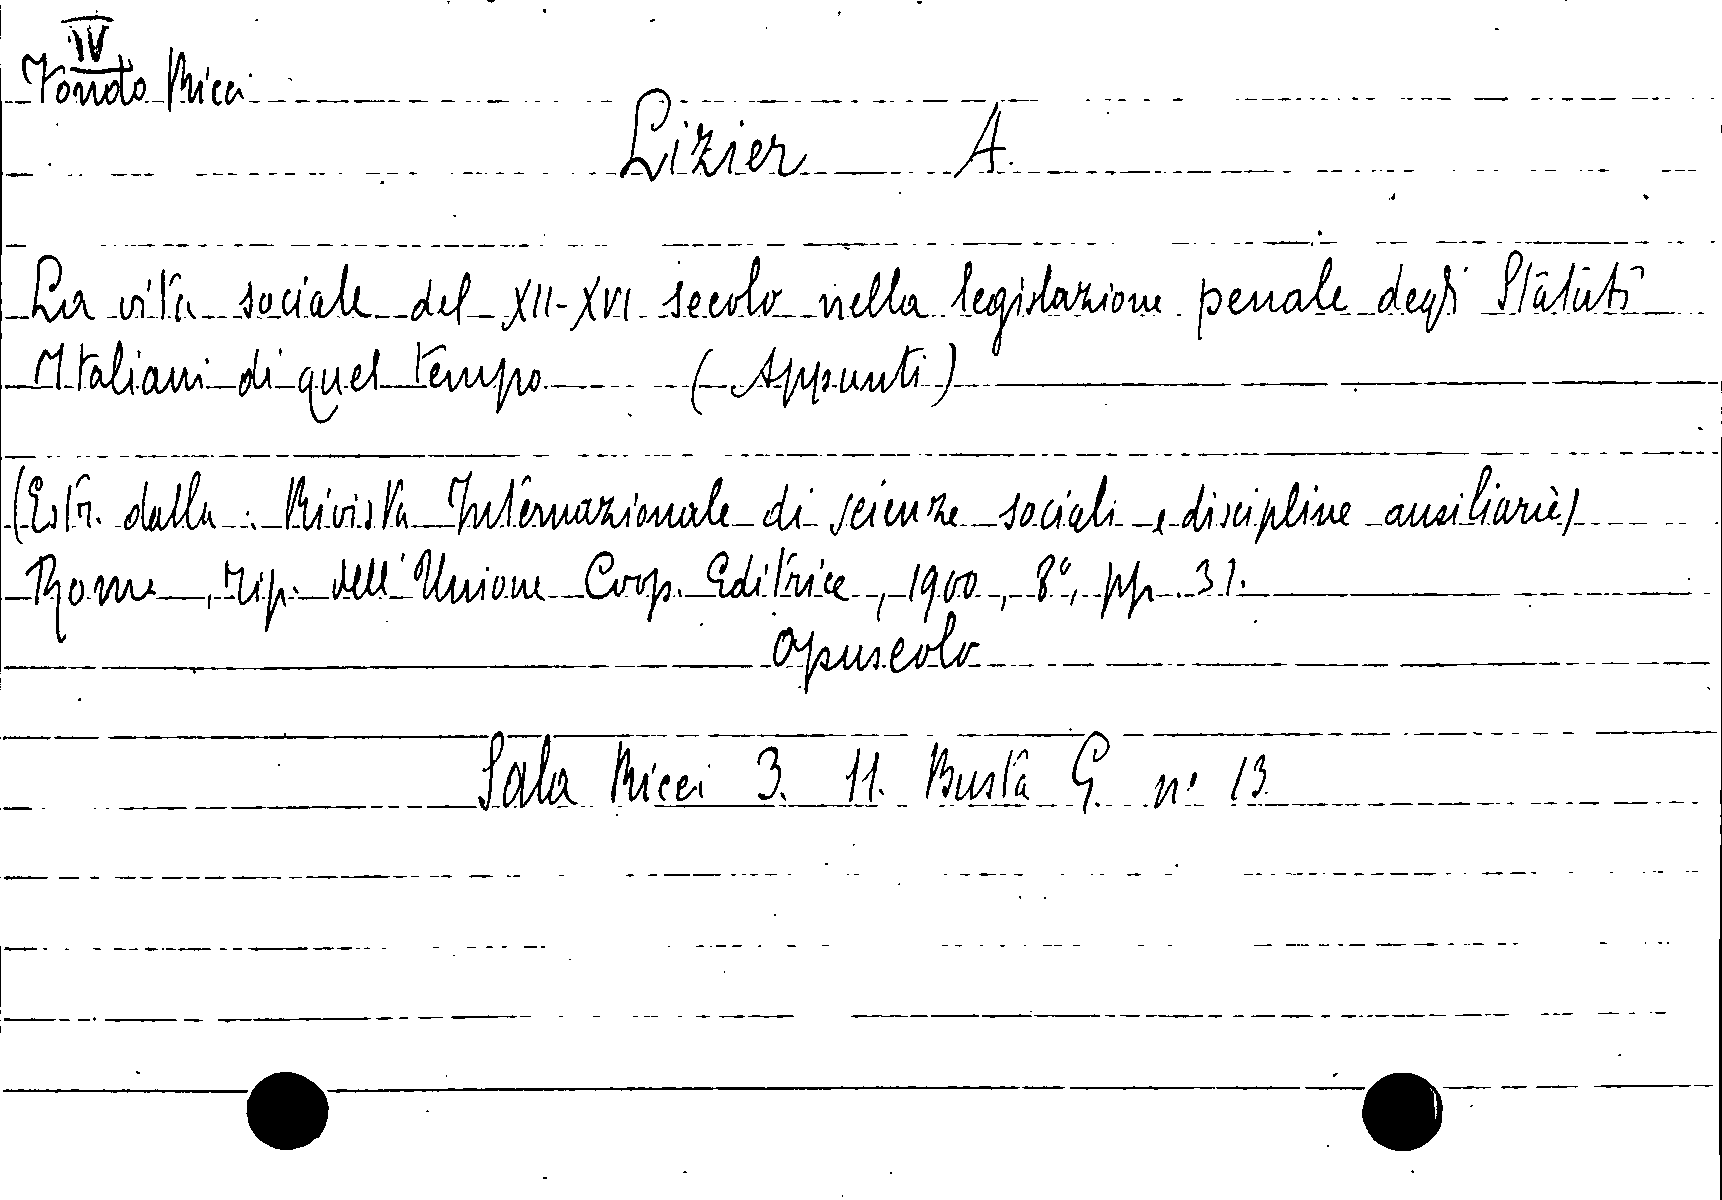 IV
Fondo Ricci
Lizier A.
La vita sociale del XII-XVI secolo nella legislazione penale degli Statuti
Italiani di quel tempo (Appunti)
(Estr. dalla: Rivista Internazionale di scienze sociali e discipline ausiliarie)
Roma, Tip. dell'Unione Coop. Editrice, 1900, 8°, pp. 31.
opuscolo
Sala Ricci 3. 11. Busta G. n° 13